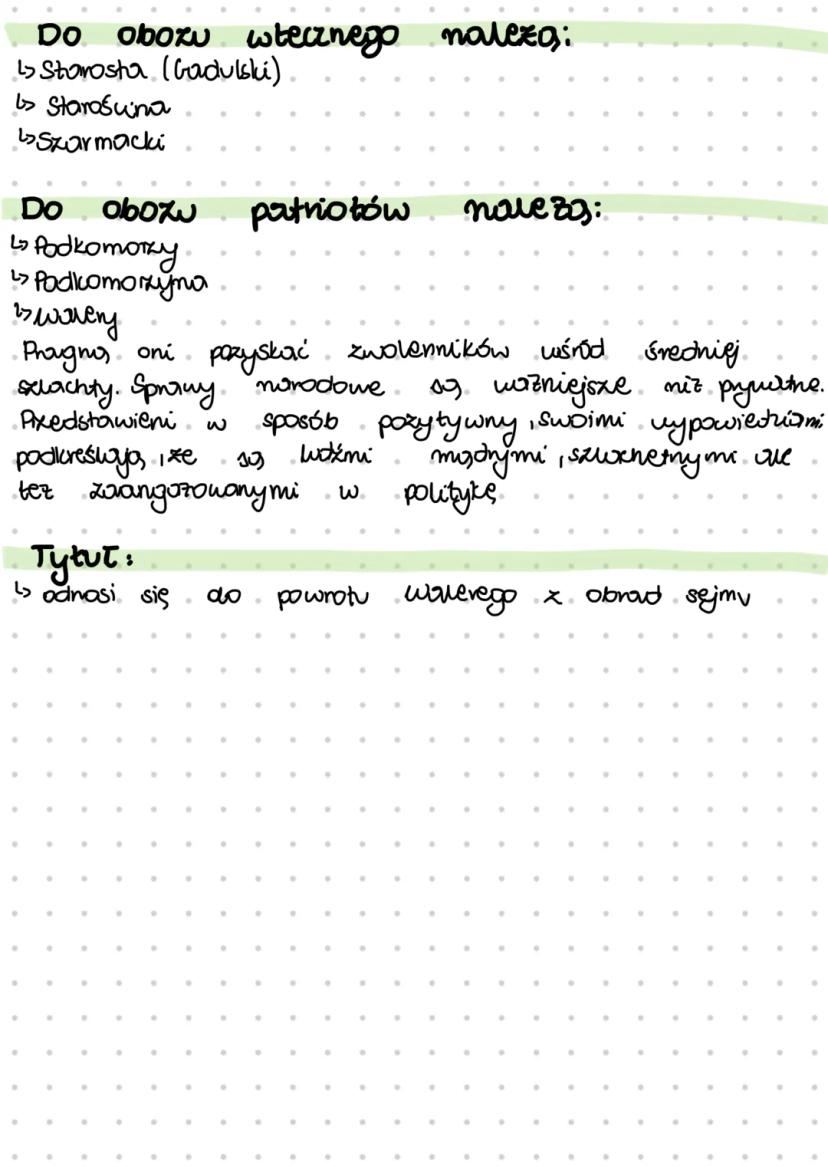 Do obozu wstecznego należą:
↳ Starosta (Gadulski)
↳ Starościna
↳ Szarmacki
Do obozu patriotów należą:
↳ Podkomorzy
↳ Podkomorzyna
↳ Walery
Pragną oni pozyskać zwolenników wśród średniej
szlachty. Sprawy narodowe są ważniejsze niż prywatne.
Przedstawieni w sposób pozytywny, swoimi wypowiedziami
podkreślają, że są ludźmi mądrymi, szlachetnymi ale
też zaangażowanymi w politykę
Tytuł:
↳ odnosi się do powrotu Walerego z obrad sejmu